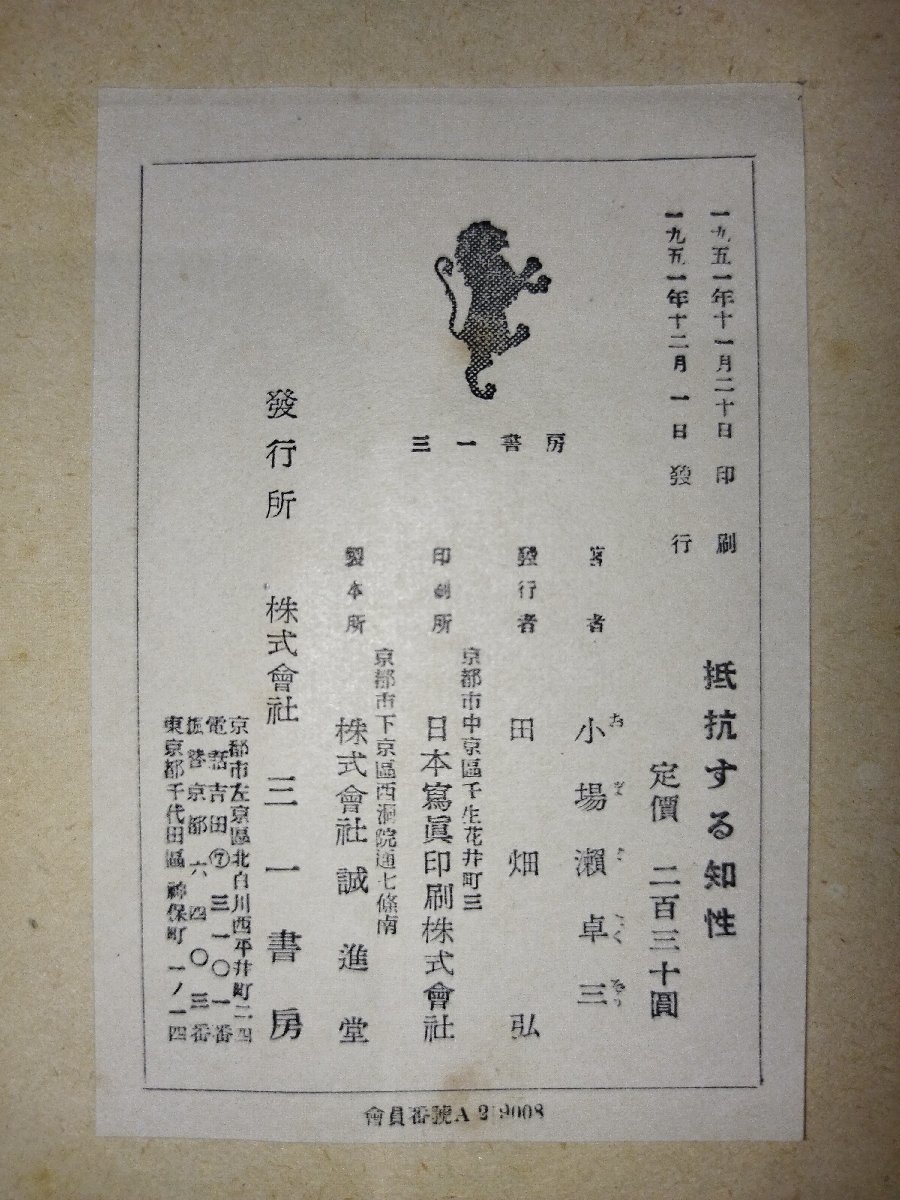 一九五一年十一月二十日 印刷
一九五一年十二月一日 發行
抵抗する知性
定價 二百三十圓
著者 小場瀬卓三
發行者 田畑弘
京都市中京區壬生花井町三
印刷所 日本寫眞印刷株式會社
京都市下京區西洞院通七條南
製本所 株式會社誠進堂
三一書房
發行所 株式會社 三一書房
京都市左京區北白川西平井町二四
電話吉田⑦三一〇一番
振替京都六四〇三番
東京都千代田區神保町一ノ一四
會員番號A 219008